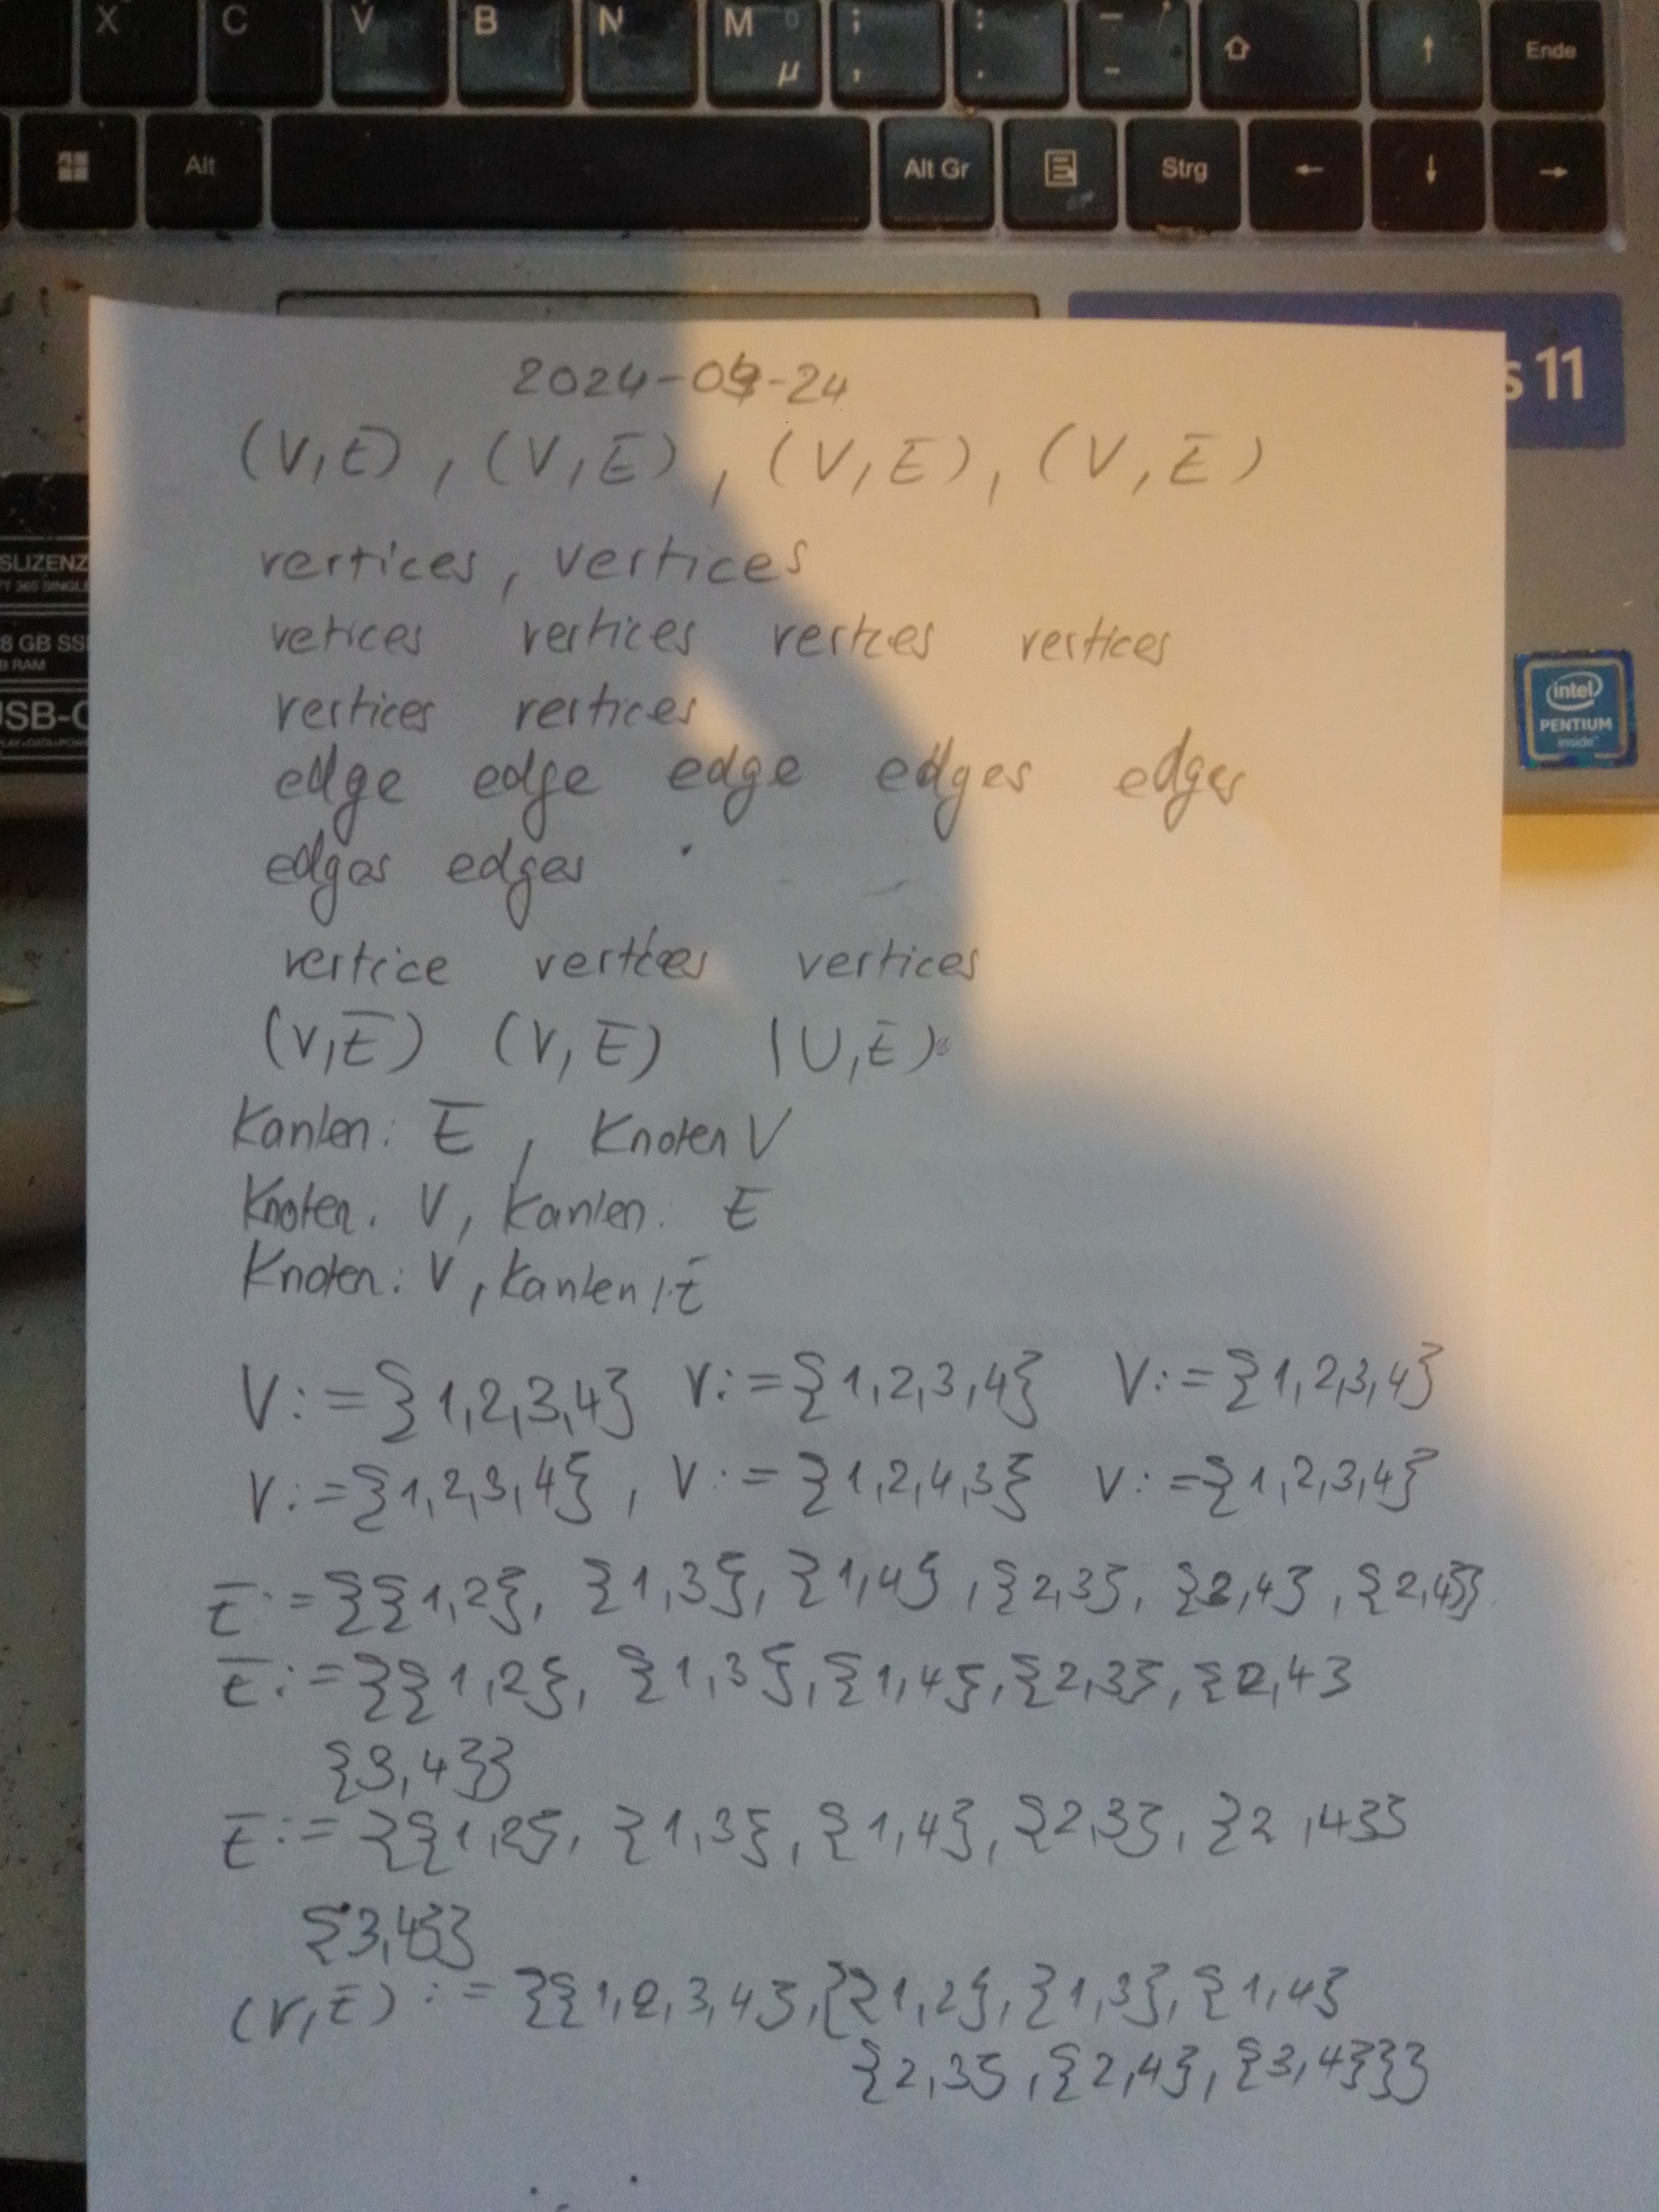 X C V B N M µ ; , : . _ - Ende
Alt Alt Gr Strg
s 11
SLIZENZ
8 GB SS
B RAM
USB-C
intel
PENTIUM
inside
2024-09-24
(V,E) , (V,E) , (V,E) , (V,E)
vertices , vertices
vetices vertices vertces vertices
vertices vertices
edge edge edge edges edges
edges edges
vertice vertices vertices
(V,E) (V,E) (U,E)
Kanten: E , Knoten V
Knoten. V, Kanten: E
Knoten: V , Kanten: E
V:={1,2,3,4} V:={1,2,3,4} V:={1,2,3,4}
V:={1,2,3,4} , V:={1,2,4,3} V:={1,2,3,4}
E:={{1,2}, {1,3}, {1,4}, {2,3}, {2,4}, {2,4}}
E:={{1,2}, {1,3}, {1,4}, {2,3}, {2,4}
{3,4}}
E:={{1,2}, {1,3}, {1,4}, {2,3}, {2,4}}
{3,4}}
(V,E) := {{1,2,3,4},{{1,2},{1,3},{1,4}
{2,3},{2,4},{3,4}}}